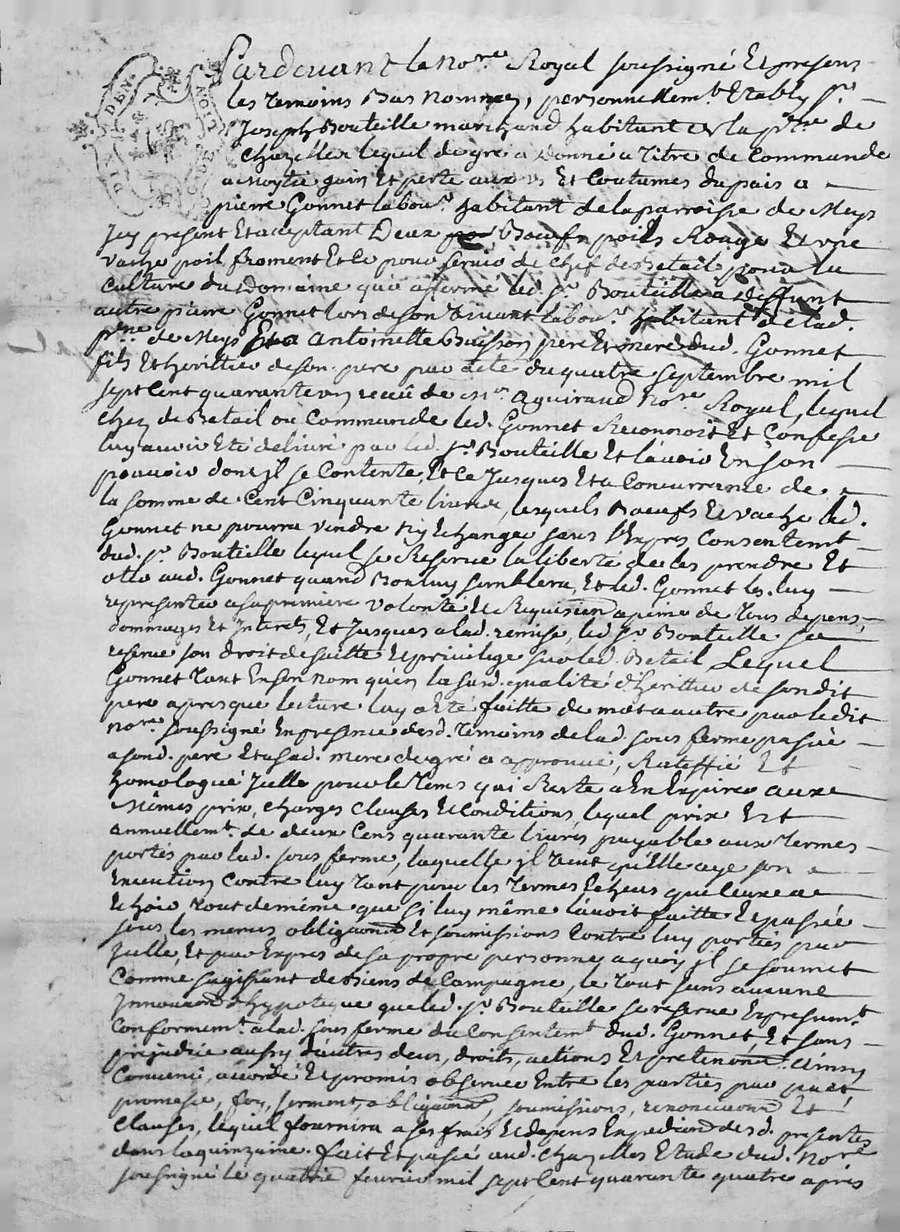 Pardevant le no.re Royal soussigné Et presens
les temoins Bas nommes, personnellem.t Etably s.r
Joseph Bouteille marchand habitant la p.sse de
Chazelles lequel de gré a donné a titre de Commande
a moytié gain Et perte aux us Et Coutumes du pais a
pierre Gonnet labou.r habitant de la parroisse de Meys
Jcy present Et acceptant Deux Boeufs poils Rouge Et une
vache poil froment Et ce pour servir de Chef de Betail pour la
Culture du Domaine qui affermé led. s.r Bouteille a deffunt
autre pierre Gonnet lors de son vivant labou.r habitant de lad.
p.sse de Meys Et a Antoinette Buisson pere Et mere dud. Gonnet
fils Et herittier de son pere par acte du quatre septembre mil
sept Cent quarante un receu de m.e aguiraud No.re Royal, lequel
Chef de Betail ou Commande led. Gonnet Reconnoit Et Confesse
luy avoir Eté delivré par led. s.r Bouteille Et l'avoir En son
pouvoir dont jl se Contente, Et Ce Jusques Et a Concurrance de
la somme de Cent Cinquante livres, lesquels Boeufs Et vache led.
Gonnet ne pourra vendre ny Echanger sans l'Expres Consentem.t
dud. s.r Bouteille lequel se Reserve la liberté de les prendre Et
otter aud. Gonnet quand Bon luy semblera, Et led. Gonnet les luy
representer a sa premiere volonté Et Requision a peine de tous depens,
dommages Et Interets, Et Jusques a lad. remise, led. s.r Bouteille se
reserve son droit de suitte Et privilege sur led. Betail Lequel
Gonnet tant En son nom qu'en la susd. qualité d'herittier de son dit
pere apres que lecture luy a Eté faitte de mot a autre par le dit
no.re soussigné En presence desd. temoins de lad. sous ferme passée
a sond. pere Et a sad. mere de gré a approuvé, Ratiffié Et
homologué Jcelle pour le tems qui Reste a En Expirer aux
Mêmes prix, charges clauses Et Conditions, lequel prix Est
annuellem.t de deux Cens quarante livres payable aux termes
portés par lad. sous ferme, laquelle jl veut qu'Elle aye son
Execution Contre luy tant pour les termes Echeus que Ceux a
Echoir tout de même que si luy même l'avoit faitte Et passée
sous les memes obligaons Et soumissions Contre luy portés par
Jcelle, Et par Expres de sa propre personne a quoy jl se soumet
Comme s'agissant de Biens de Campagne, le tout sans aucune
Jnnovaon d'hypoteque que led. s.r Bouteille se reserve Expressem.t
Conformem.t a lad. sous ferme du Consentem.t dud. Gonnet, Et sans
prejudice aussy d'autres deus, droits, actions Et pretentions. Ainsy
Convenu, accordé Et promis observer Entre les parties par pact,
promesse, foy, serment, obligaons, soumissions, renonciaons Et
Clauses, lequel fournira a ses frais Et depens Expedion desd. presentes
dans la quinzaine. fait Et passé aud. Chazelles Etude dud. No.re
soussigné le quatrie fevrier mil sept Cent quarante quatre apres